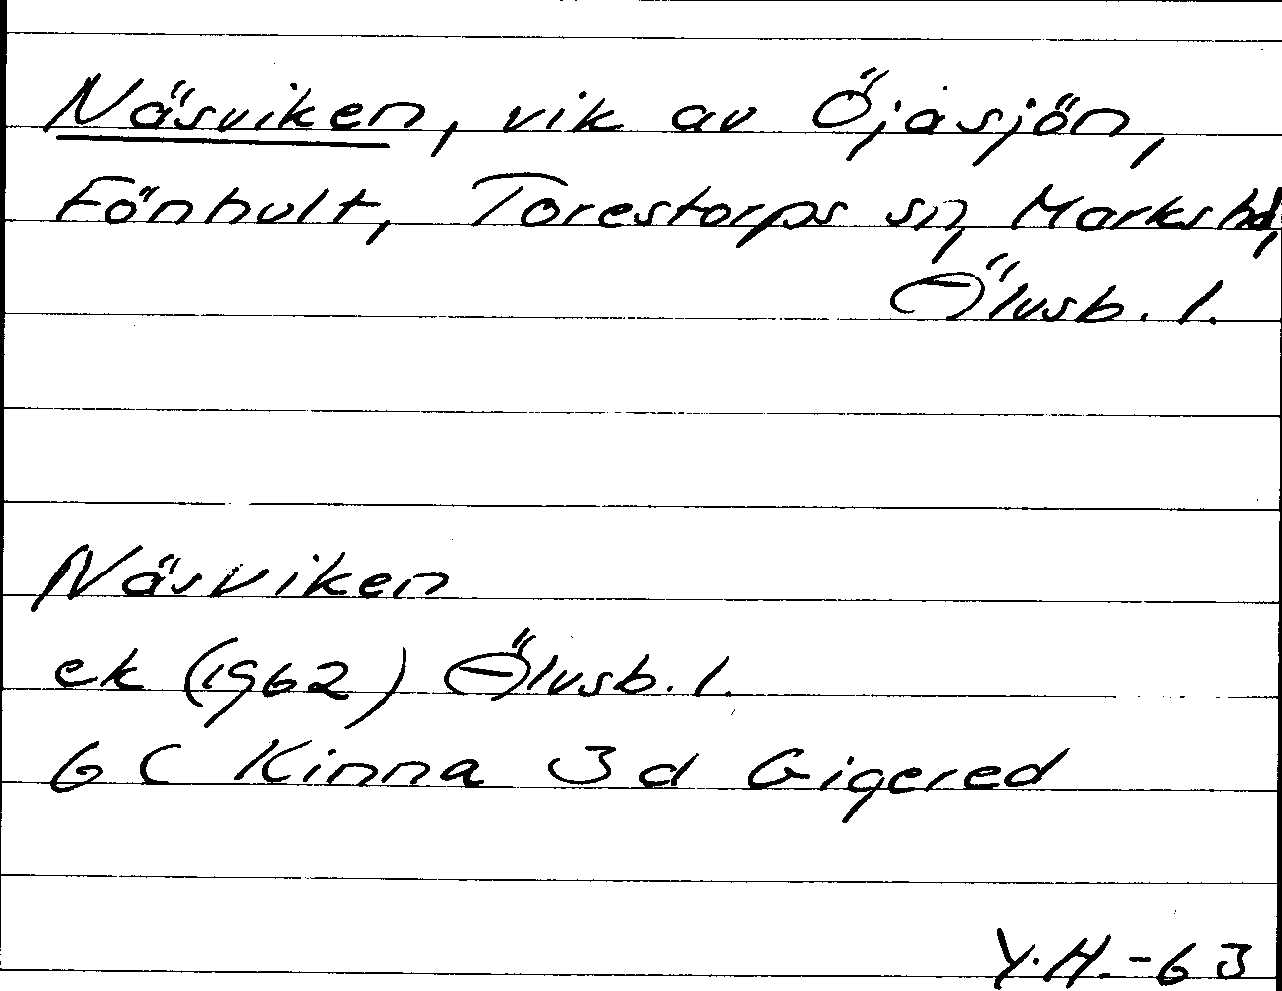 Näsviken, vik av Öjasjön,
Fönhult, Torestorps sn, Marks hd,
Älvsb. l.
Näsviken
ek (1962) Älvsb. l.
6 C Kinna 3 d Gigered
Y.H.-63